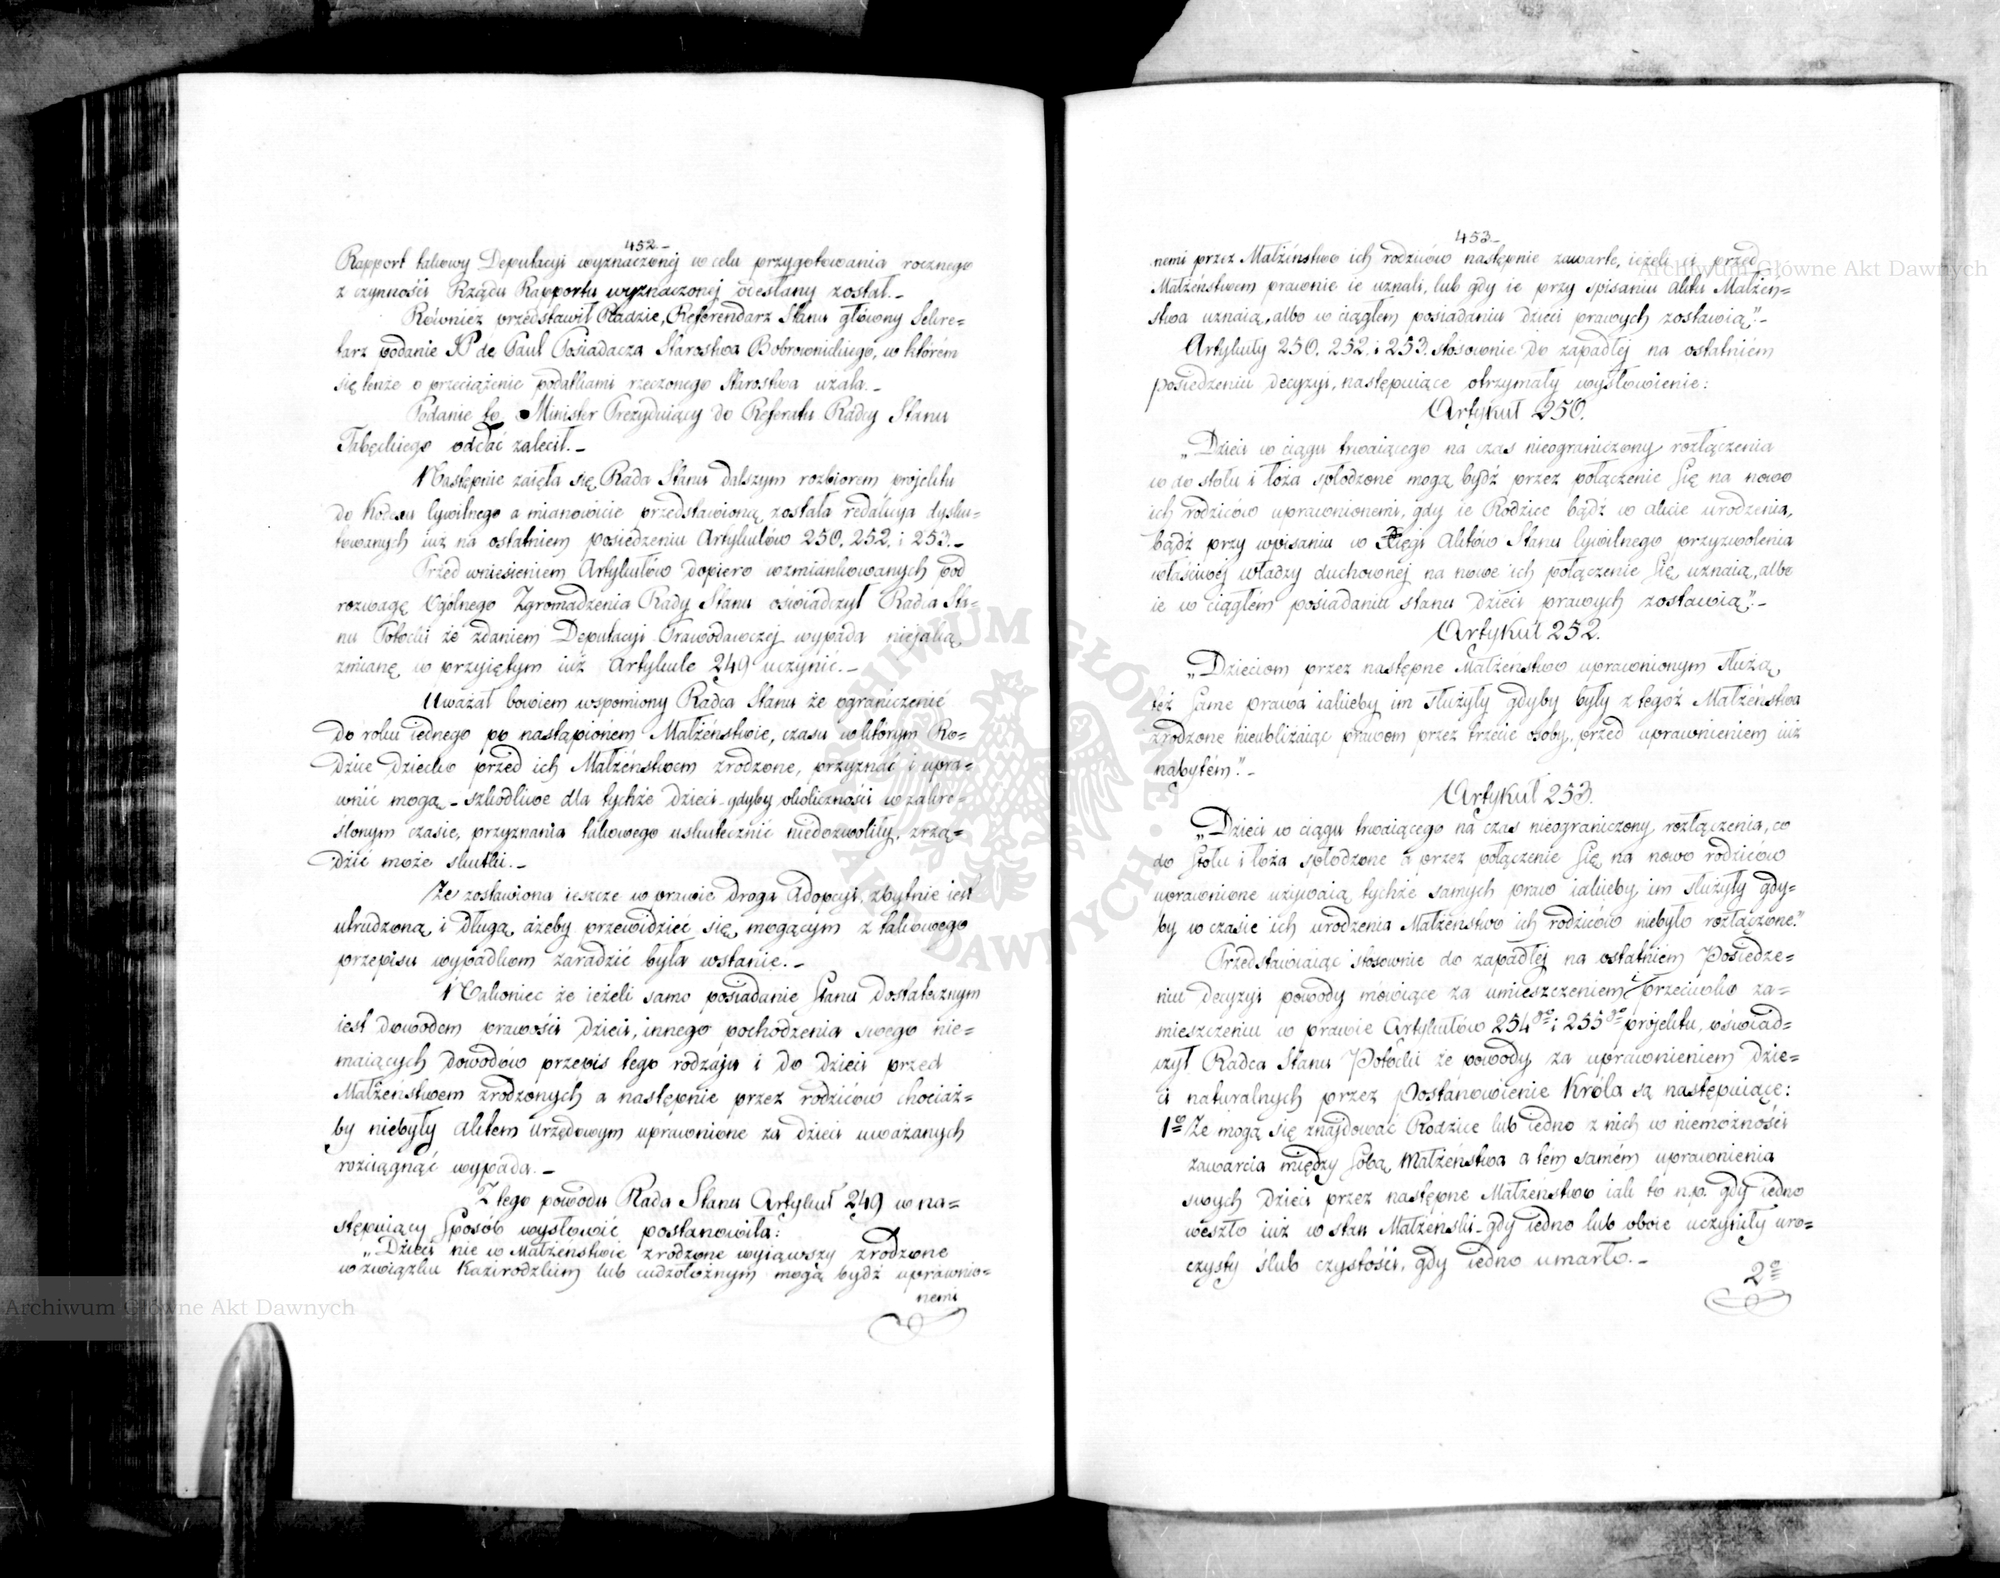 452.-
Rapport takowy Deputacyi wyznaczonéj w celu przygotowania rocznego
z czynności Rządu Rapportu wyznaczonéj odesłany został._
Również przedstawił Radzie, Referendarz Stanu główny Sekre=
tarz podanie JP de Paul Posiadacza Starostwa Bobrownickiego, w którém
się tenże o przeciążenie podatkami rzeczonego Starostwa użala._
Podanie to Minister Prezyduiący do Referatu Radcy Stanu
oddać zalecił._
Następnie zaięła się Rada Stanu dalszym rozbiorem projektu
do Kodexu Cywilnego a mianowicie przedstawioną została redakcya dysku=
towanych iuż na ostatniem posiedzeniu Artykułów 250. 252. i 253._
Przed wniesieniem Artykułów dopiero wzmiankowanych pod
rozwagę Ogólnego Zgromadzenia Rady Stanu oświadczył Radca Sta=
nu Potocki że zdaniem Deputacyi Prawodawczéj wypada niejaką
zmianę w przyiętym iuż Artykule 249 uczynić._
Uważał bowiem wspomiony Radca Stanu że ograniczenie
do roku iednego po nastąpioném Małżeństwie, czasu w którym Ro=
dzice dziecko przed ich Małżeństwem zrodzone, przyznać i upra=
wnić mogą_ szkodliwe dla tychże dzieci_ gdyby okoliczności w zakre=
ślonym czasie, przyznania takowego uskutecznić niedozwoliły, zrzą=
dzić może skutki._
Że zostawiona ieszcze w prawie droga Adopcyi, zbytnie iest
utrudzoną i długą, ażeby przewidzieć się mogącym z takowego
przepisu wypadkom zaradzić była wstanie._
Nakoniec że ieżeli samo posiadanie Stanu dostatecznym
iest dowodem prawości dzieci, innego pochodzenia swego nie=
maiących dowodów przepis tego rodzaju i do dzieci przed
Małżeństwem zrodzonych a następnie przez rodziców chociaż=
by niebyły Aktem urzędowym uprawnione za dzieci uważanych
rozciągnąć wypada._
Z tego powodu Rada Stanu Artykuł 249 w na=
stępuiący Sposób wysłowić postanowiła:
„Dzieci nie w Małżeństwie zrodzone wyiąwszy zrodzone
w związku Kazirodzkim lub cudzołożnym mogą bydź uprawnio=
nemi
453._
nemi przez Małżeństwo ich rodziców następnie zawarte, ieżeli ci przed
Małżeństwem prawnie ie uznali, lub gdy ie przy spisaniu Aktu Małżeń=
stwa uznaią, albo w ciągłem posiadaniu dzieci prawych zostawią"._
Artykuły 250. 252. i 253. stosownie do zapadłéj na ostatniém
posiedzeniu decyzyi, następuiące otrzymały wysłowienie:
Artykuł 250.
„Dzieci w ciągu trwaiącego na czas nieograniczony rozłączenia
co do stołu i łoża spłodzone mogą bydź przez połączenie się na nowo
ich rodziców uprawnionemi, gdy ie Rodzice bądź w akcie urodzenia,
bądź przy wpisaniu w Xięgi Aktów Stanu Cywilnego przyzwolenia
właściwéj władzy duchownéj na nowe ich połączenie się uznaią, albo
ie w ciągłém posiadaniu stanu dzieci prawych zostawią"._
Artykuł 252.
„Dzieciom przez następne Małżeństwo uprawnionym służą
też same prawa iakieby im służyły gdyby były z tegoż Małżeństwa
zrodzone nieubliżaiąc prawom przez trzecie osoby, przed uprawnieniem iuż
nabytém"._
Artykuł 253.
„Dzieci w ciągu trwaiącego na czas nieograniczony rozłączenia, co
do Stołu i łoża spłodzone a przez połączenie się na nowo rodziców
uprawnione używaią tychże samych praw iakieby im służyły gdy=
by w czasie ich urodzenia Małżeństwo ich rodziców niebyło rozłączone."
Przedstawiaiąc stosownie do zapadłéj na ostatniém Posiedze=
niu decyzyi powody mówiące za umieszczeniem i przeciwko za=
mieszczeniu w prawie Artykułów 254go i 255go projektu, oświad=
czył Radca Stanu Potocki że powody za uprawnieniem dzie=
ci naturalnych przez Postanowienie Króla są następuiące:
1o Że mogą się znajdować Rodzice lub iedno z nich w niemożności
zawarcia między sobą Małżeństwa a tem samém uprawnienia
swych dzieci przez następne Małżeństwo iak to n.p. gdy iedno
weszło iuż w stan Małżeński_ gdy iedno lub oboie uczyniły uro=
czysty ślub czystości, gdy iedno umarło._
2o
Archiwum Główne Akt Dawnych
Archiwum Główne Akt Dawnych
ARCHIWUM GŁÓWNE AKT DAWNYCH